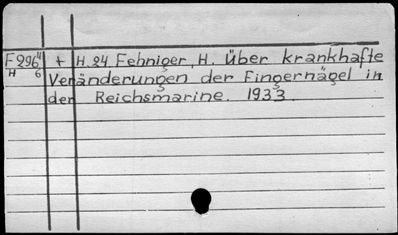 F 296 4 + H. 24 Fehniger, H. Über krankhafte
H 6 Veränderungen der Fingernägel in
der Reichsmarine. 1933.